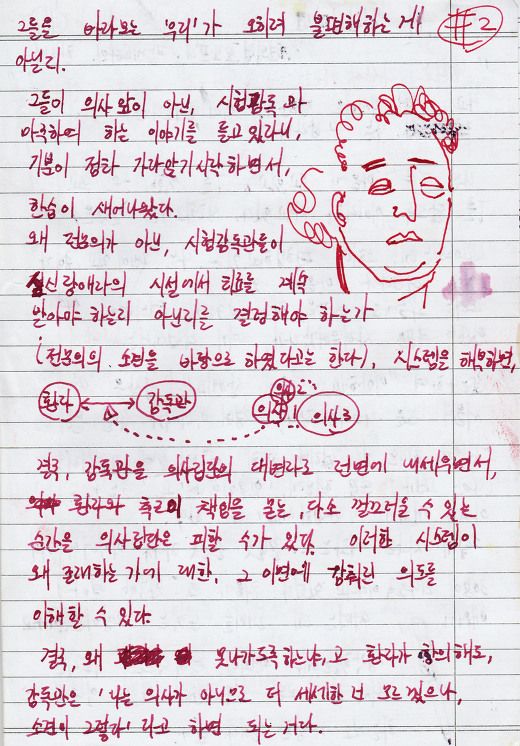 그들을 바라보는 '우리'가 오히려 불편해하는 게
아닐지.
#2
그들이 의사 앞이 아닌, 시험감독과
마주하여 하는 이야기를 듣고 있자니,
기분이 점차 가라앉기 시작하면서,
한숨이 새어나왔다.
왜 전문의가 아닌, 시험감독관들이
정신장애자의 시설에서 치료를 계속
받아야 하는지 아닌지를 결정해야 하는가
(전문의의 소견을 바탕으로 하였다고는 한다), 시스템을 해부하면,
환자 감독관 의사2 의사1 의사3
결국, 감독관을 의사집단의 대변자로 전면에 내세우면서,
환자와 축고의 책임을 묻는, 다소 껄끄러울 수 있는
순간을 의사집단은 피할 수가 있다. 이러한 시스템이
왜 존재하는가에 대한, 그 이면에 감춰진 의도를
이해할 수 있다.
결국, 왜 못나가도록하느냐, 고 환자가 항의해도,
감독관은 '나는 의사가 아니므로 더 세세한 건 모르겠으나,
소견이 그렇다' 라고 하면 되는 거다.